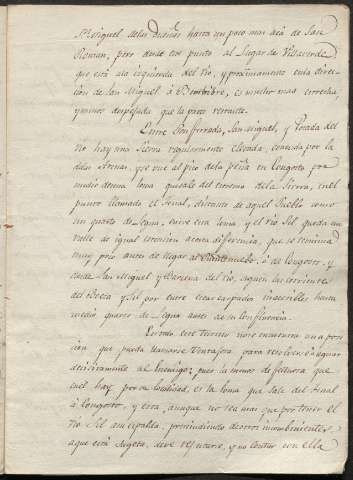 Sn. Miguel delas Dueñas hasta un poco mas acá de San
Roman, pero desde este punto al Lugar de Villaverde
que está ala izquierda del rio, y proximamente enla direc-
cion de San Miguel á Bembibre, es mucho mas estrecha,
y menos despejada que la parte restante.
Entre Ponferrada, San Miguel, y Posada del
Rio hay una Sierra regularmente elevada, cortada por la
delas, y se une al pico dela peña en Congosto por
medio de una loma que sale del terreno dela Sierra, en el
punto llamado el Arnal, distante de aquel Pueblo como
un quarto de Legua, entre esta loma y el rio Sil queda un
valle de igual extension acorta diferencia, que se termina
muy poco antes de llegar al de Congosto, y
desde San Miguel y Barcena del rio, siguen las corrientes
del Boeza y Sil por entre escarpados inaccesibles hasta
medio quarto de Legua antes de su confluencia.
En todo este terreno no se encuentra una posi-
cion que pueda llamarse ventajosa para resolverse á aguardar
decisivamente al Enemigo; pues la menos defectuosa que
en el hay por su localidad, es la loma que sale del Arnal
á Congosto, y esta, aunque no sea mas que por tener el
rio Sil ala espalda, prescindiendo de otros inconvenientes
a que está sugeta, deve resputarse, y no contar con ella